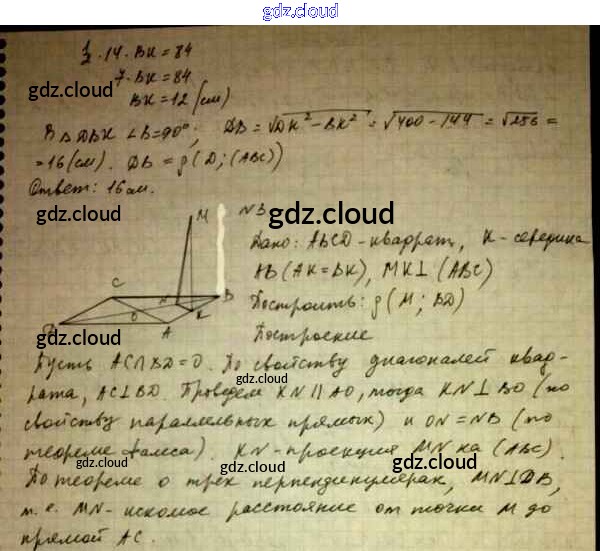 gdz.cloud
1/2 · 14 · BK = 84
7 · BK = 84
BK = 12 (см)
gdz.cloud
В △DBK ∠B=90°; DB = √DK² - BK² = √400 - 144 = √256 =
= 16 (см). DB = ρ(D; (ABC))
Ответ: 16 см.
gdz.cloud
M
N3
gdz.cloud
Дано: ABCD - квадрат, K - середина
AB (AK = BK), MK⊥(ABC)
Построить: ρ(M; BD)
Построение
C
N
B
K
O
D
A
gdz.cloud
gdz.cloud
Пусть AC∩BD=O. По свойству диагоналей квад-
рата, AC⊥BD. Проведем KN||AO, тогда KN⊥BO (по
gdz.cloud
свойству параллельных прямых) и ON=NB (по
теореме Фалеса). KN - проекция MN на (ABC).
gdz.cloud
gdz.cloud
gdz.cloud
По теореме о трех перпендикулярах, MN⊥DB,
т.е. MN - искомое расстояние от точки M до
прямой AC.